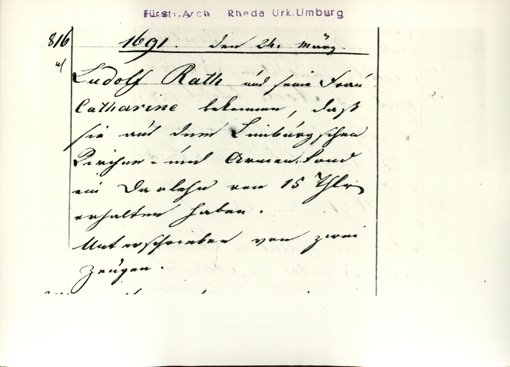 Fürstl. Arch. Rheda Urk. Limburg
816 1691. den 24. März.
Ludolf Rath und seine Frau
Catharine bekennen, daß
sie aus dem Limburgschen
Kirchen- und Armen-Fond
ein Darlehn von 15 Thlr
erhalten haben.
Unterschrieben von zwei
Zeugen.